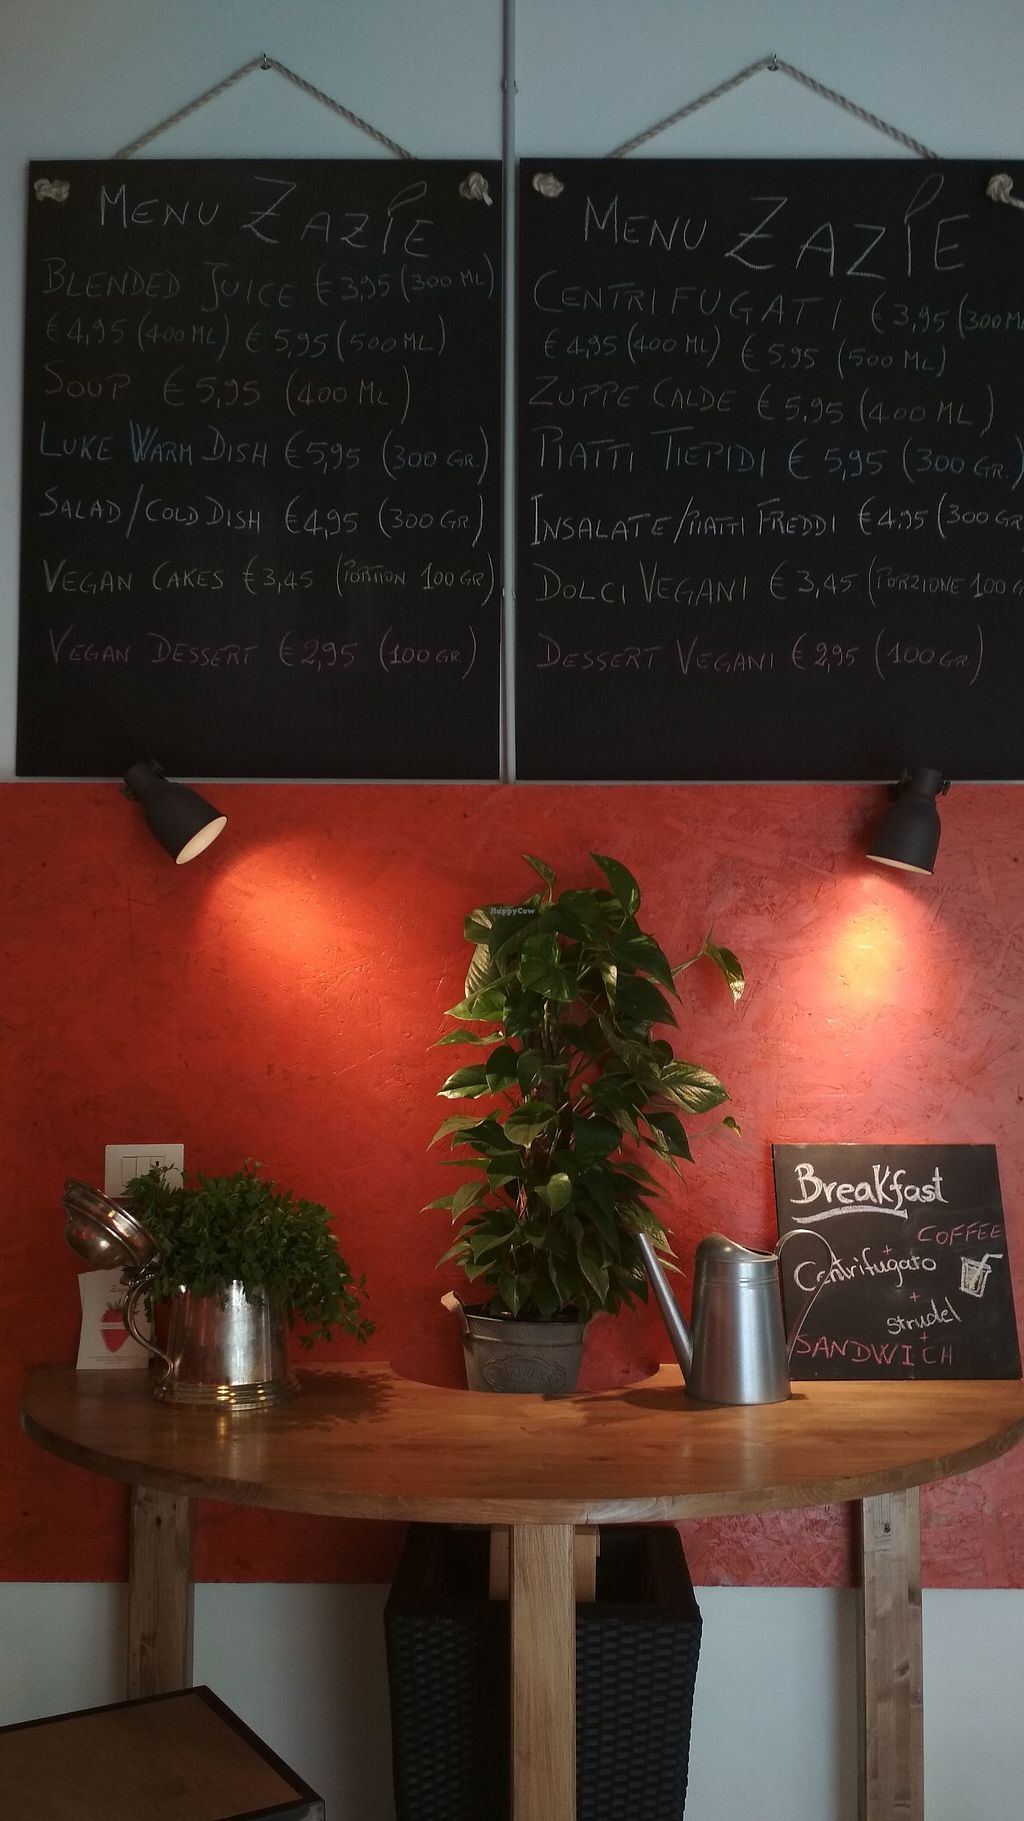 MENU ZAZIE
BLENDED JUICE €3,95 (300 ML)
€4,95 (400 ML) €5,95 (500 ML)
SOUP €5,95 (400 ML)
LUKE WARM DISH €5,95 (300 GR.)
SALAD/COLD DISH €4,95 (300 GR)
VEGAN CAKES €3,45 (PORTION 100 GR)
VEGAN DESSERT €2,95 (100 GR.)
MENU ZAZIE
CENTRIFUGATI €3,95 (300 ML
€4,95 (400 ML) €5,95 (500 ML)
ZUPPE CALDE €5,95 (400 ML)
PIATTI TIEPIDI €5,95 (300 GR.)
INSALATE/PIATTI FREDDI €4,95 (300 GR
DOLCI VEGANI €3,45 (PORZIONE 100 G
DESSERT VEGANI €2,95 (100 GR.)
HappyCow
Breakfast
COFFEE
+
Centrifugato
+
strudel
+
SANDWICH